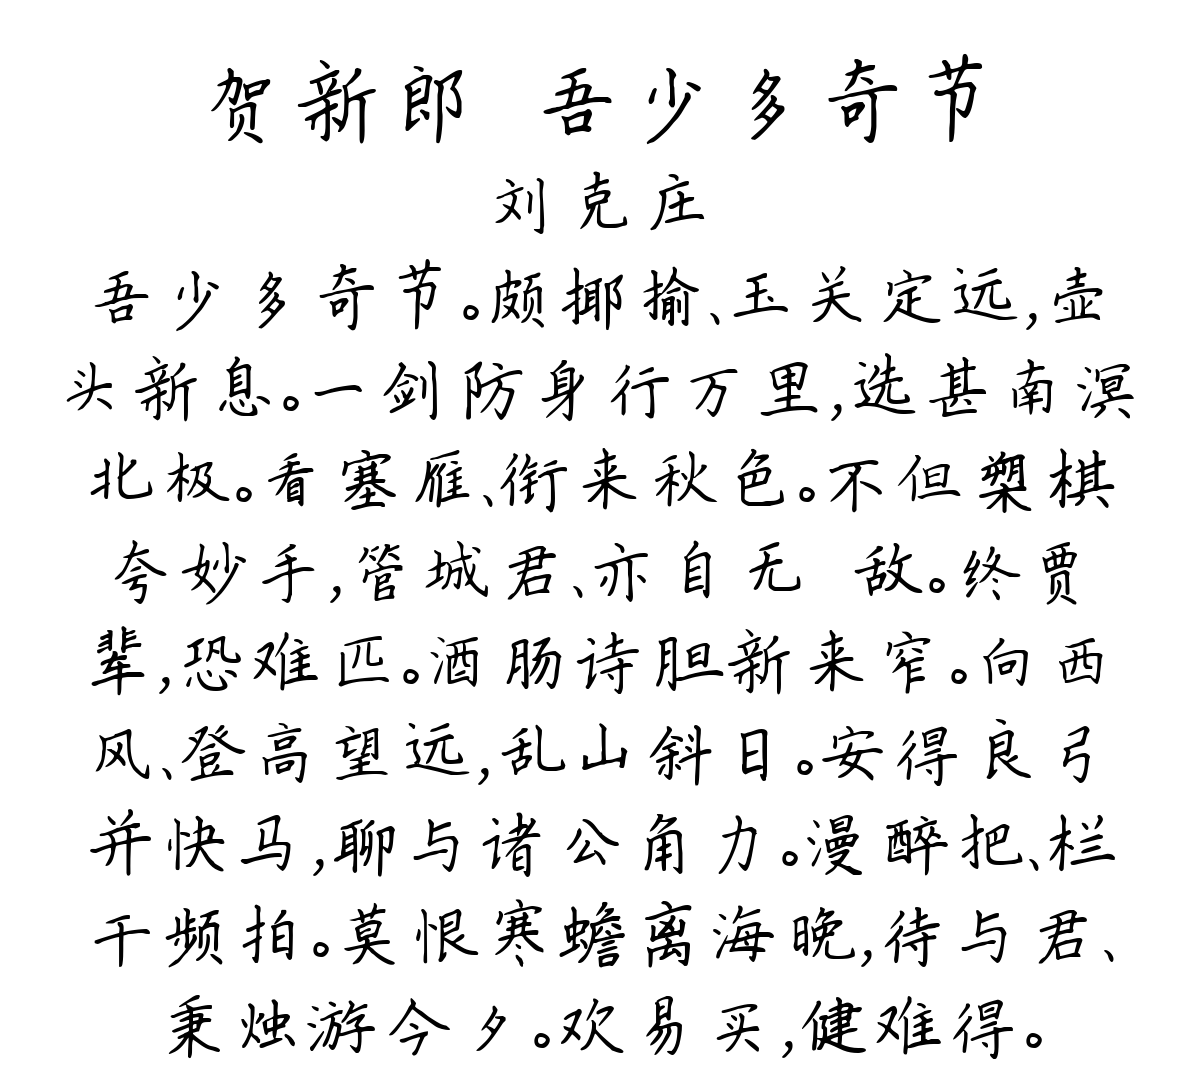 贺新郎 吾少多奇节
刘克庄
吾少多奇节。颇揶揄、玉关定远,壶
头新息。一剑防身行万里,选甚南溟
北极。看塞雁、衔来秋色。不但槊棋
夸妙手,管城君、亦自无 敌。终贾
辈,恐难匹。酒肠诗胆新来窄。向西
风、登高望远,乱山斜日。安得良弓
并快马,聊与诸公角力。漫醉把、栏
干频拍。莫恨寒蟾离海晚,待与君、
秉烛游今夕。欢易买,健难得。